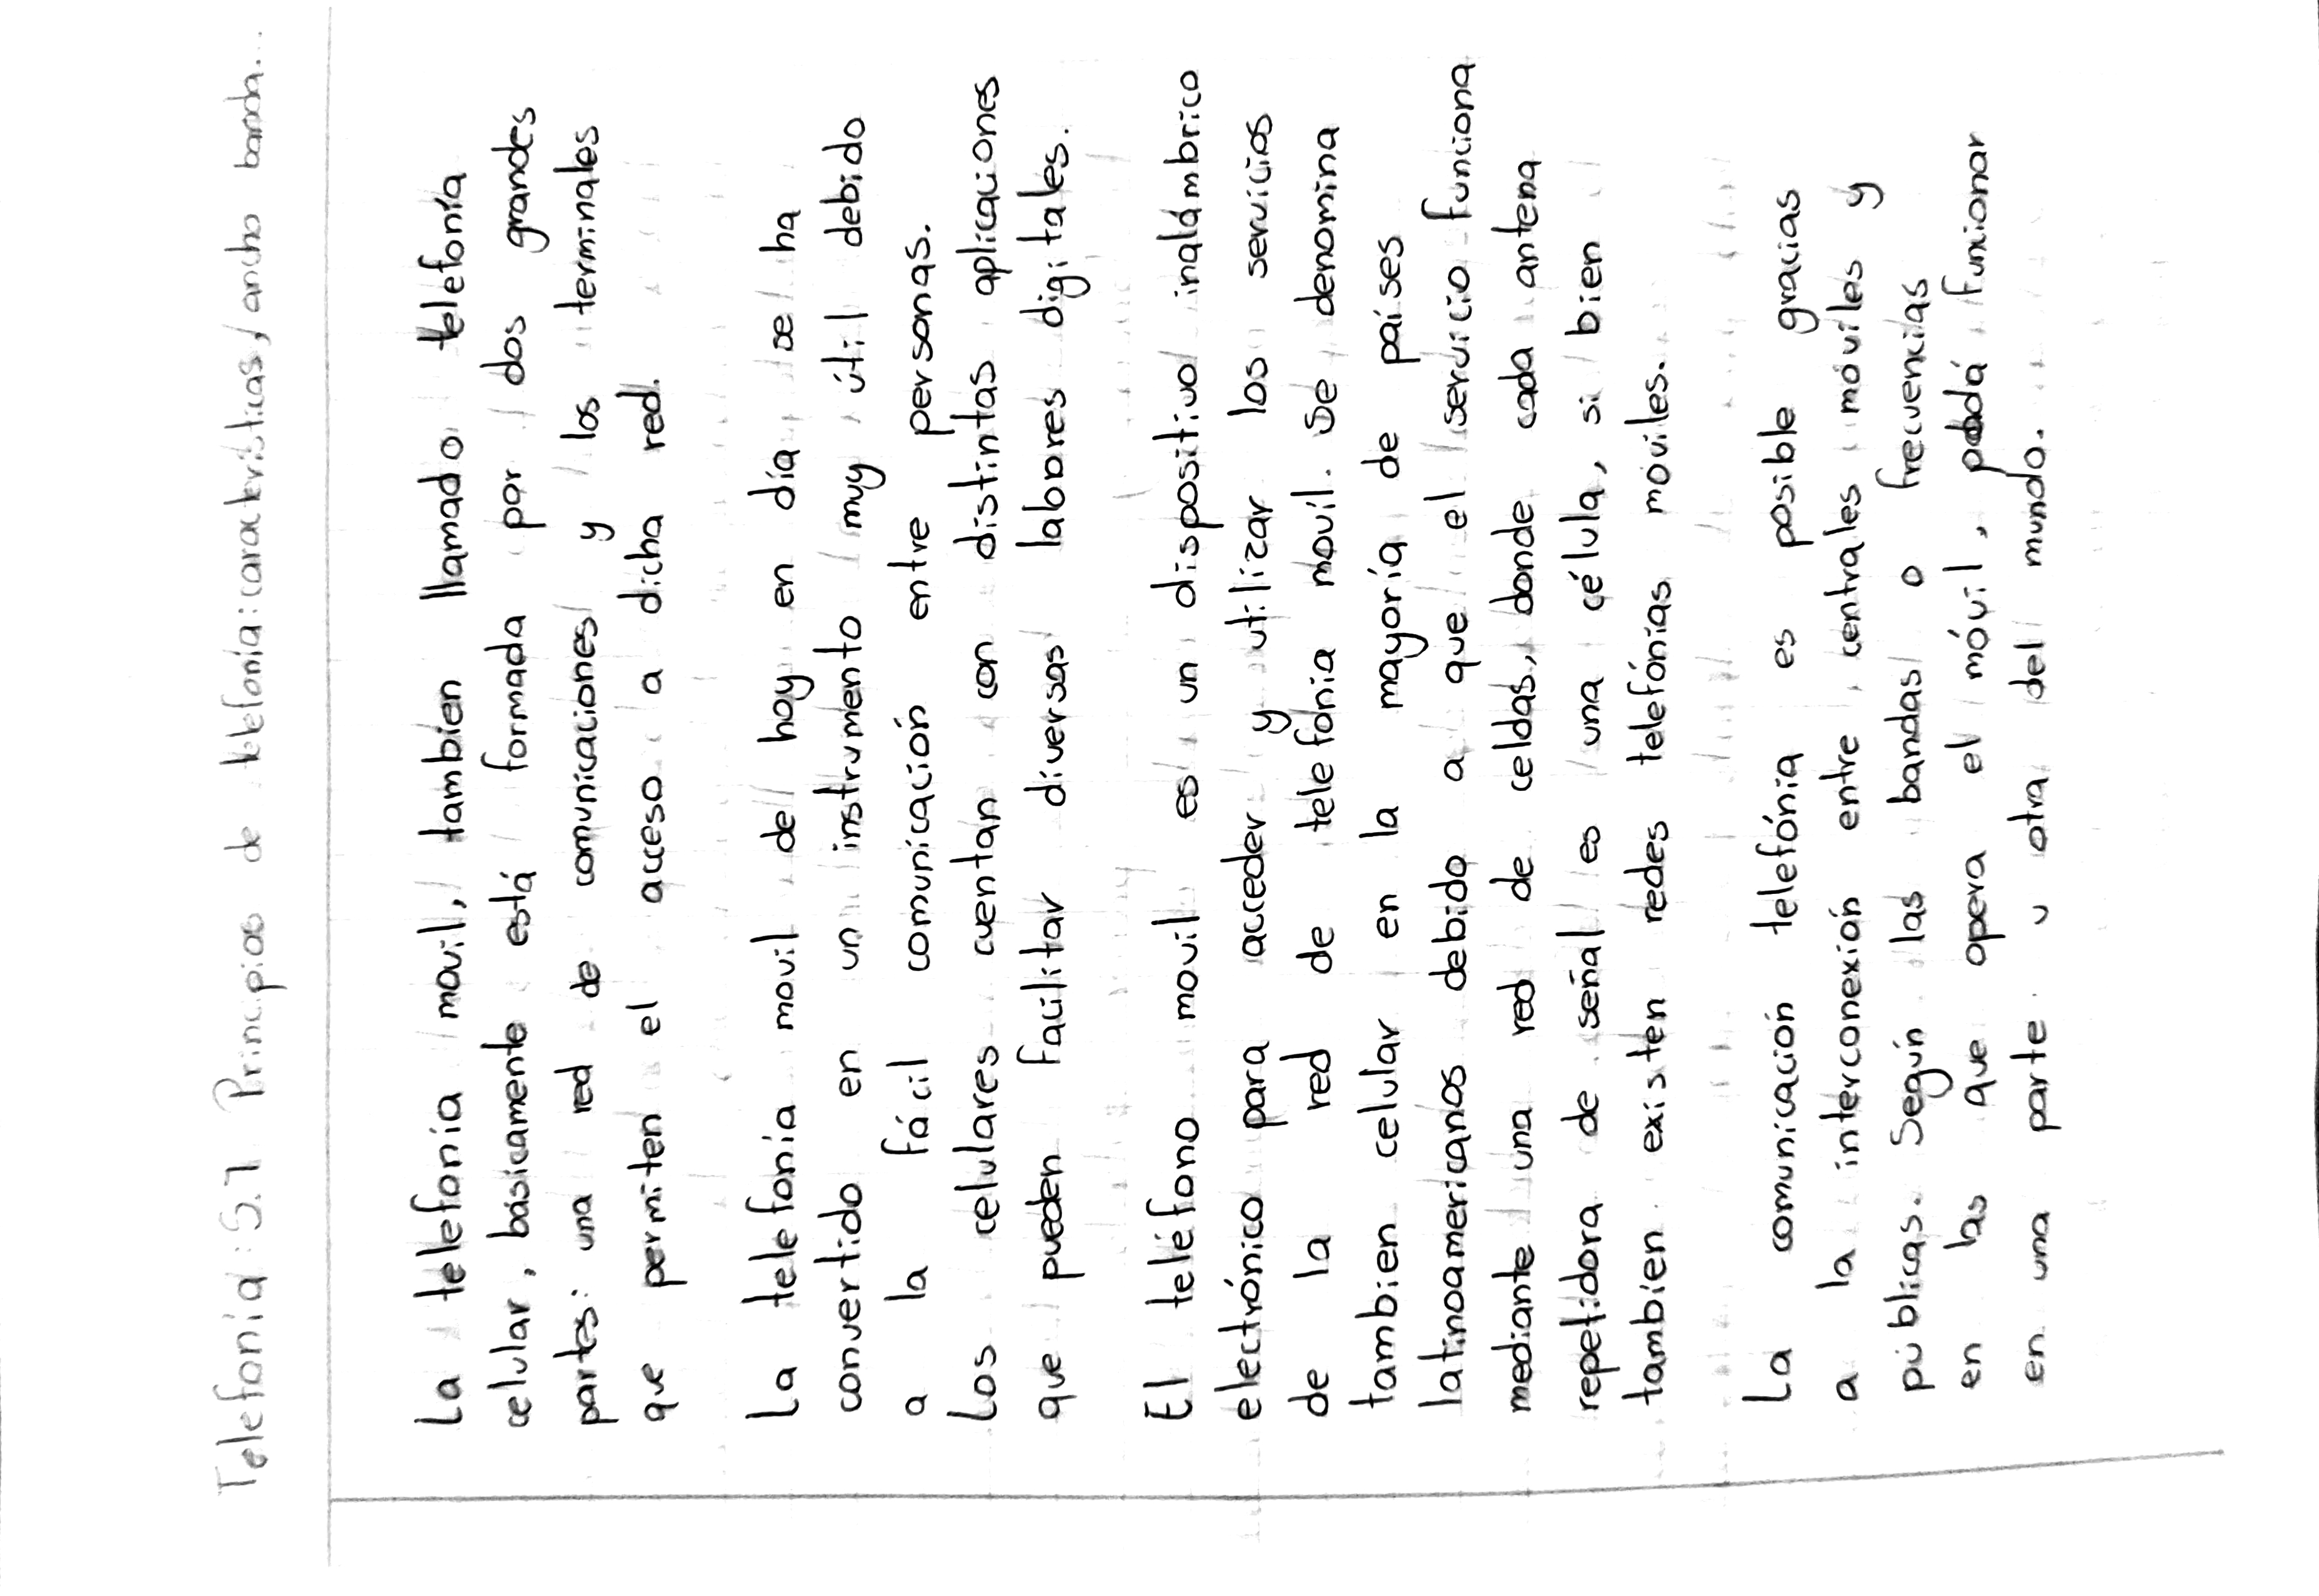 Telefonía: 5.1 Principios de telefonía: características, ancho banda...
La telefonía movil, tambien llamado telefonía
celular, básicamente está formada por dos grandes
partes: una red de comunicaciones y los terminales
que permiten el acceso a dicha red.
La telefonía movil de hoy en día se ha
convertido en un instrumento muy útil debido
a la fácil comunicación entre personas.
Los celulares cuentan con distintas aplicaciones
que pueden facilitar diversas labores digitales.
El teléfono movil es un dispositivo inalámbrico
electrónico para acceder y utilizar los servicios
de la red de telefónia movíl. Se denomina
tambien celular en la mayoría de países
latinoamericanos debido a que el servicio funciona
mediante una red de celdas, donde cada antena
repetidora de señal es una célula, si bien
tambien existen redes telefónias moviles.
La comunicación telefónia es posible gracias
a la interconexión entre centrales móviles y
públicas. Según las bandas o frecuencias
en las que opera el móvil, podá funcionar
en una parte u otra del mundo.